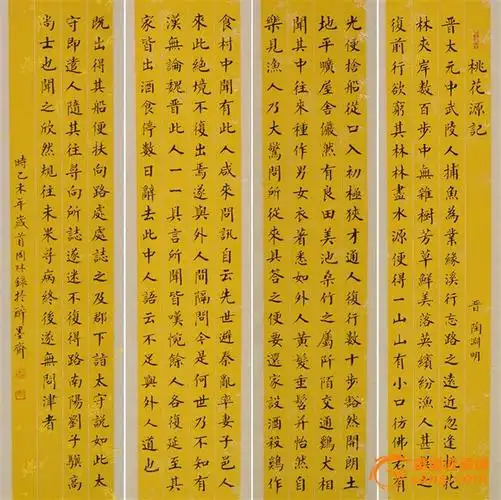 桃花源記 晉 陶淵明
晉太元中武陵人捕魚為業緣溪行忘路之遠近忽逢桃花
林夾岸數百步中無雜樹芳草鮮美落英繽紛漁人甚異之
復前行欲窮其林林盡水源便得一山山有小口彷佛若有
光便捨船從口入初極狹才通人復行數十步豁然開朗土
地平曠屋舍儼然有良田美池桑竹之屬阡陌交通鷄犬相
聞其中往來種作男女衣著悉如外人黃髮垂髫并怡然自
樂見漁人乃大驚問所從來具答之便要還家設酒殺鷄作
食村中聞有此人咸來問訊自云先世避秦亂率妻子邑人
來此絕境不復出焉遂與外人間隔問今是何世乃不知有
漢無論魏晉此人一一具言所聞皆嘆惋餘人各復延至其
家皆出酒食停數日辭去此中人語云不足與外人道也
既出得其船便扶向路處處誌之及郡下詣太守說如此太
守即遣人隨其往尋向所誌遂迷不復得路南陽劉子驥高
尚士也聞之欣然規往未果尋病終後遂無問津者
時乙未年歲首周林錄於醉墨齋